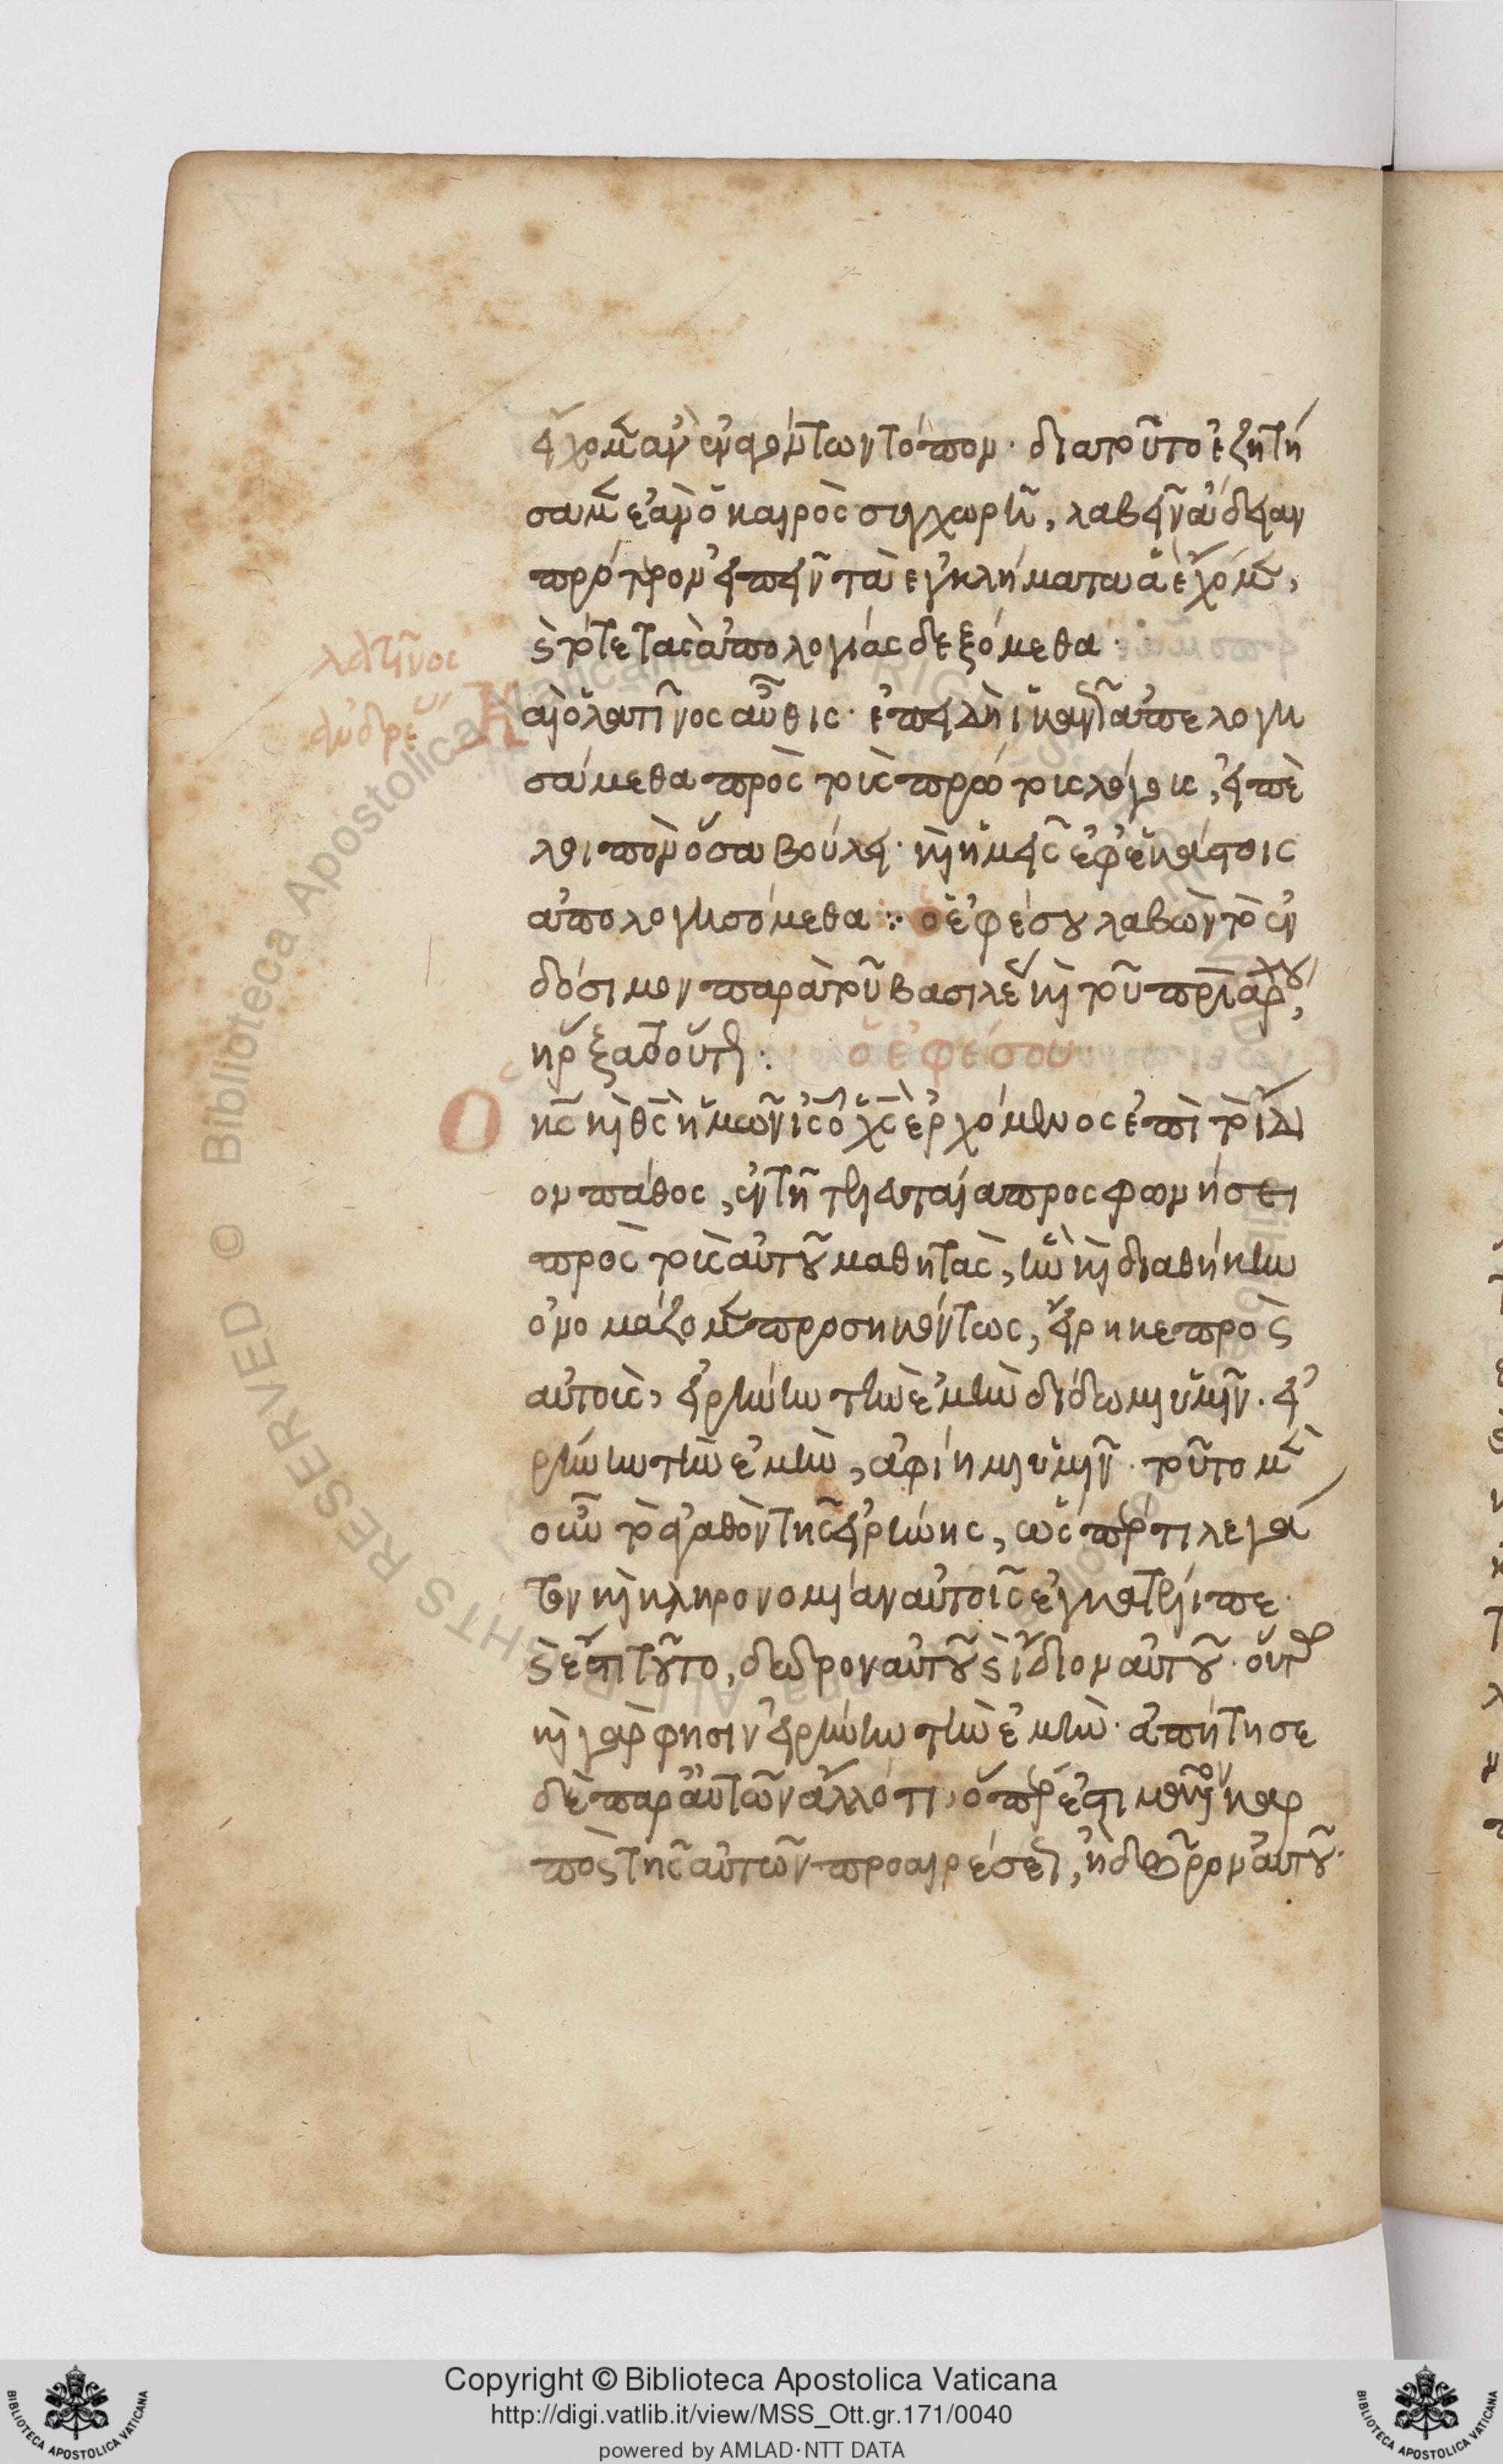 εἴχομεν ἂν ἐναγόντων τόπον· διατοῦτο ἐζητή
σαμεν ἐὰν ὁ καιρὸς συγχωρῇ, λαβεῖν ἄδειαν
πρότερον εἰπεῖν τὰ ἐγκλήματα ἃ ἔχομεν,
καὶ τότε τὰς ἀπολογίας δεξόμεθα·
λατῖνος
ἀνδρέου
Καὶ ὁ λατῖνος αὖθις· ἐπειδὴ ἱκανῶς ἀπελογη
σάμεθα πρὸς τοὺς πρώτους λόγους, εἰπὲ
λοιπὸν ὅσα βούλει· καὶ ἡμεῖς ἐφ' ἑκάστοις
ἀπολογησόμεθα :· ὁ ἐφέσου λαβὼν τὸ ἐν
δόσιμον παρὰ τοῦ βασιλέως καὶ τοῦ πατριάρχου,
ἤρξατο οὕτως:
ὁ ἐφέσου
Ὁ
κς καὶ θς ἡμῶν ις ὁ χς ἐρχόμενος ἐπὶ τὸ ἴδι
ον πάθος, ἐν τῇ τελευταίᾳ προσφωνήσει
πρὸς τοὺς αὐτοῦ μαθητὰς, ἣν καὶ διαθήκην
ὀνομάζομεν προσηκόντως, εἴρηκε πρὸς
αὐτοὺς, εἰρήνην τὴν ἐμὴν δίδωμι ὑμῖν· εἰ
ρήνην τὴν ἐμὴν, ἀφίημι ὑμῖν· τοῦτο μὲν
οὖν τὸ ἀγαθὸν τῆς εἰρήνης, ὥσπερ τι λεγά
τον καὶ κληρονομίαν αὐτοῖς ἐγκατέλιπε·
καὶ ἔστι τοῦτο, δῶρον αὐτοῦ καὶ ἴδιον αὐτοῦ· οὕτως
καὶ γάρ φησιν εἰρήνην τὴν ἐμὴν· ἀπῄτησε
δὲ παρ' αὐτῶν ἄλλό τι, ὅπέρ ἐστι μόνον καρ
πὸς τῆς αὐτῶν προαιρέσεως, ἢ δῶρον αὐτοῦ·
Copyright © Biblioteca Apostolica Vaticana
http://digi.vatlib.it/view/MSS_Ott.gr.171/0040
powered by AMLAD·NTT DATA